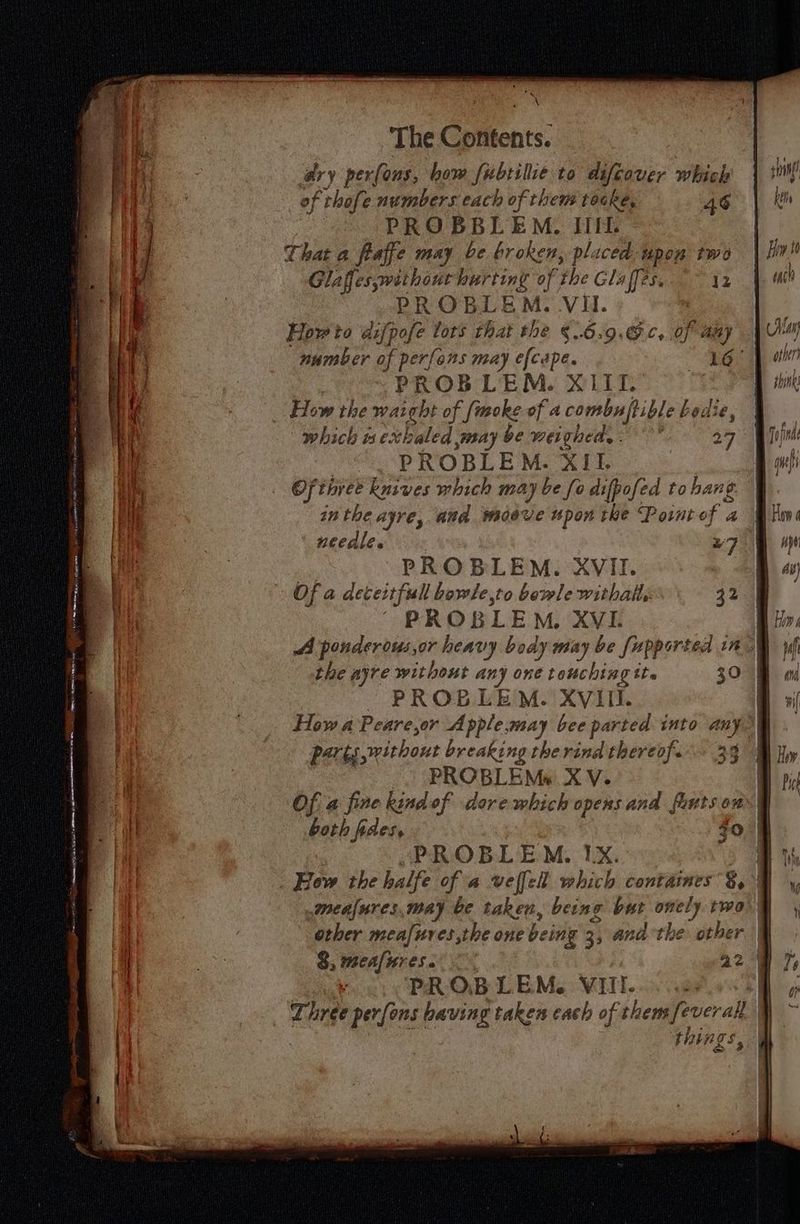 The Contents.
dry perſons, how ſubtillie to diſcover which
of thoſe numbers each of them tooke, 46
PROBBLEM. IIII.
That a ſtaffe may be broken, placed upon two
Glaſſes, without hurting of the Glaſſes. 12
PROBLEM. VII.
How to diſpoſe lots that the 5.6.9.&c. of any
number of perſons may eſcape. 16
PROBLEM. XIII.
How the waight of ſmoke of a combuſtible bodie,
which is exhaled, may be weighed. 27
PROBLEM. XII.
Of three knives which may be ſo diſpoſed to hang
in the ayre, and moove upon the Point of a
needle. 27
PROBLEM. XVII.
Of a deceitfull bowle, to bowle withall. 32
PROBLEM, XVI.
A ponderous, or heavy body may be ſupported in
the ayre without any one touching it. 30
PROBLEM. XVIII.
How a Peare, or Apple, may bee parted into any
parts, without breaking the rind thereof. 33
PROBLEM. XV.
Of a fine kind of dore which opens and ſhuts on
both ſides, 30
PROBLEM. IX.
How the halfe of a veſſell which containes 8,
meaſures, may be taken, being but onely two
other meaſures, the one being 3, and the other
8, meaſures. 22
PROBLEM. VIII.
Three perſons having taken each of them ſeverall
things,